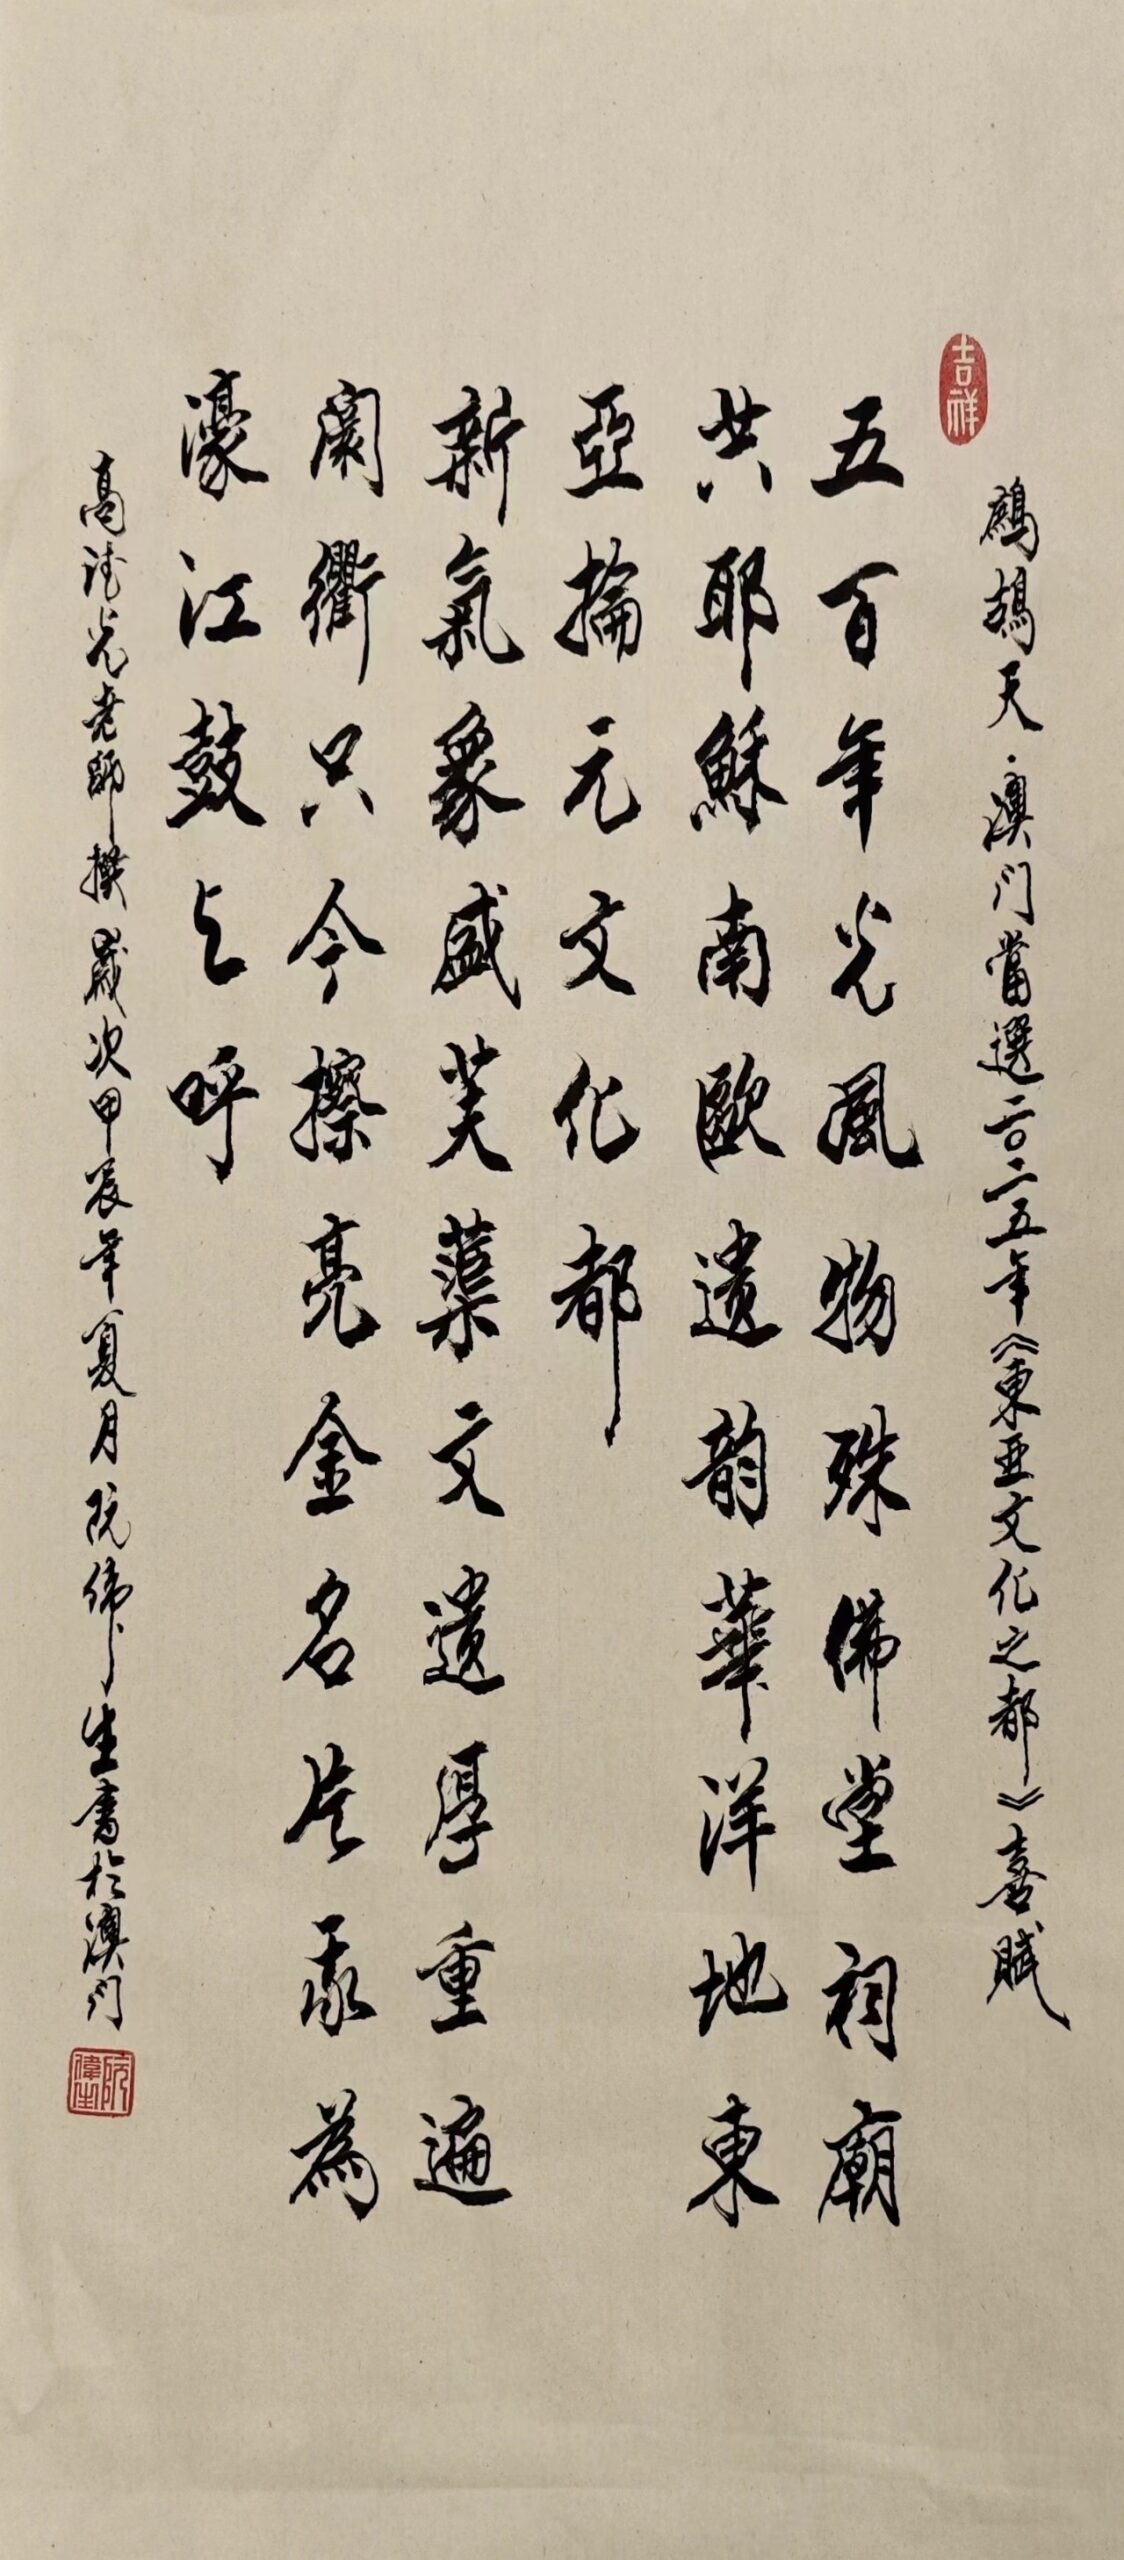 吉祥
鷓鴣天·澳门當選二〇二五年《東亚文化之都》喜賦
五百年光風物殊佛堂祠廟
共耶穌南歐遺韵華洋地東
亞掄元文化都
新氣象盛芙蕖文遺厚重遍
閭衢只今擦亮金名片永為
濠江鼓与呼
高德光老師撰歲次甲辰年夏月阮偉生書於澳门
阮偉生